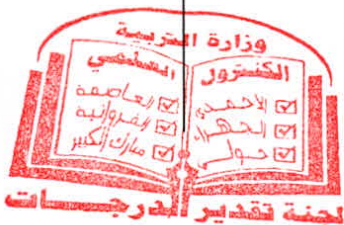 وزارة التربية
الكنترول
☑ الأحمدي
☑ الجهراء
☑ حولي
☑ العاصمة
☑ الفروانية
☑ مبارك الكبير
لجنة تقدير الدرجـــات